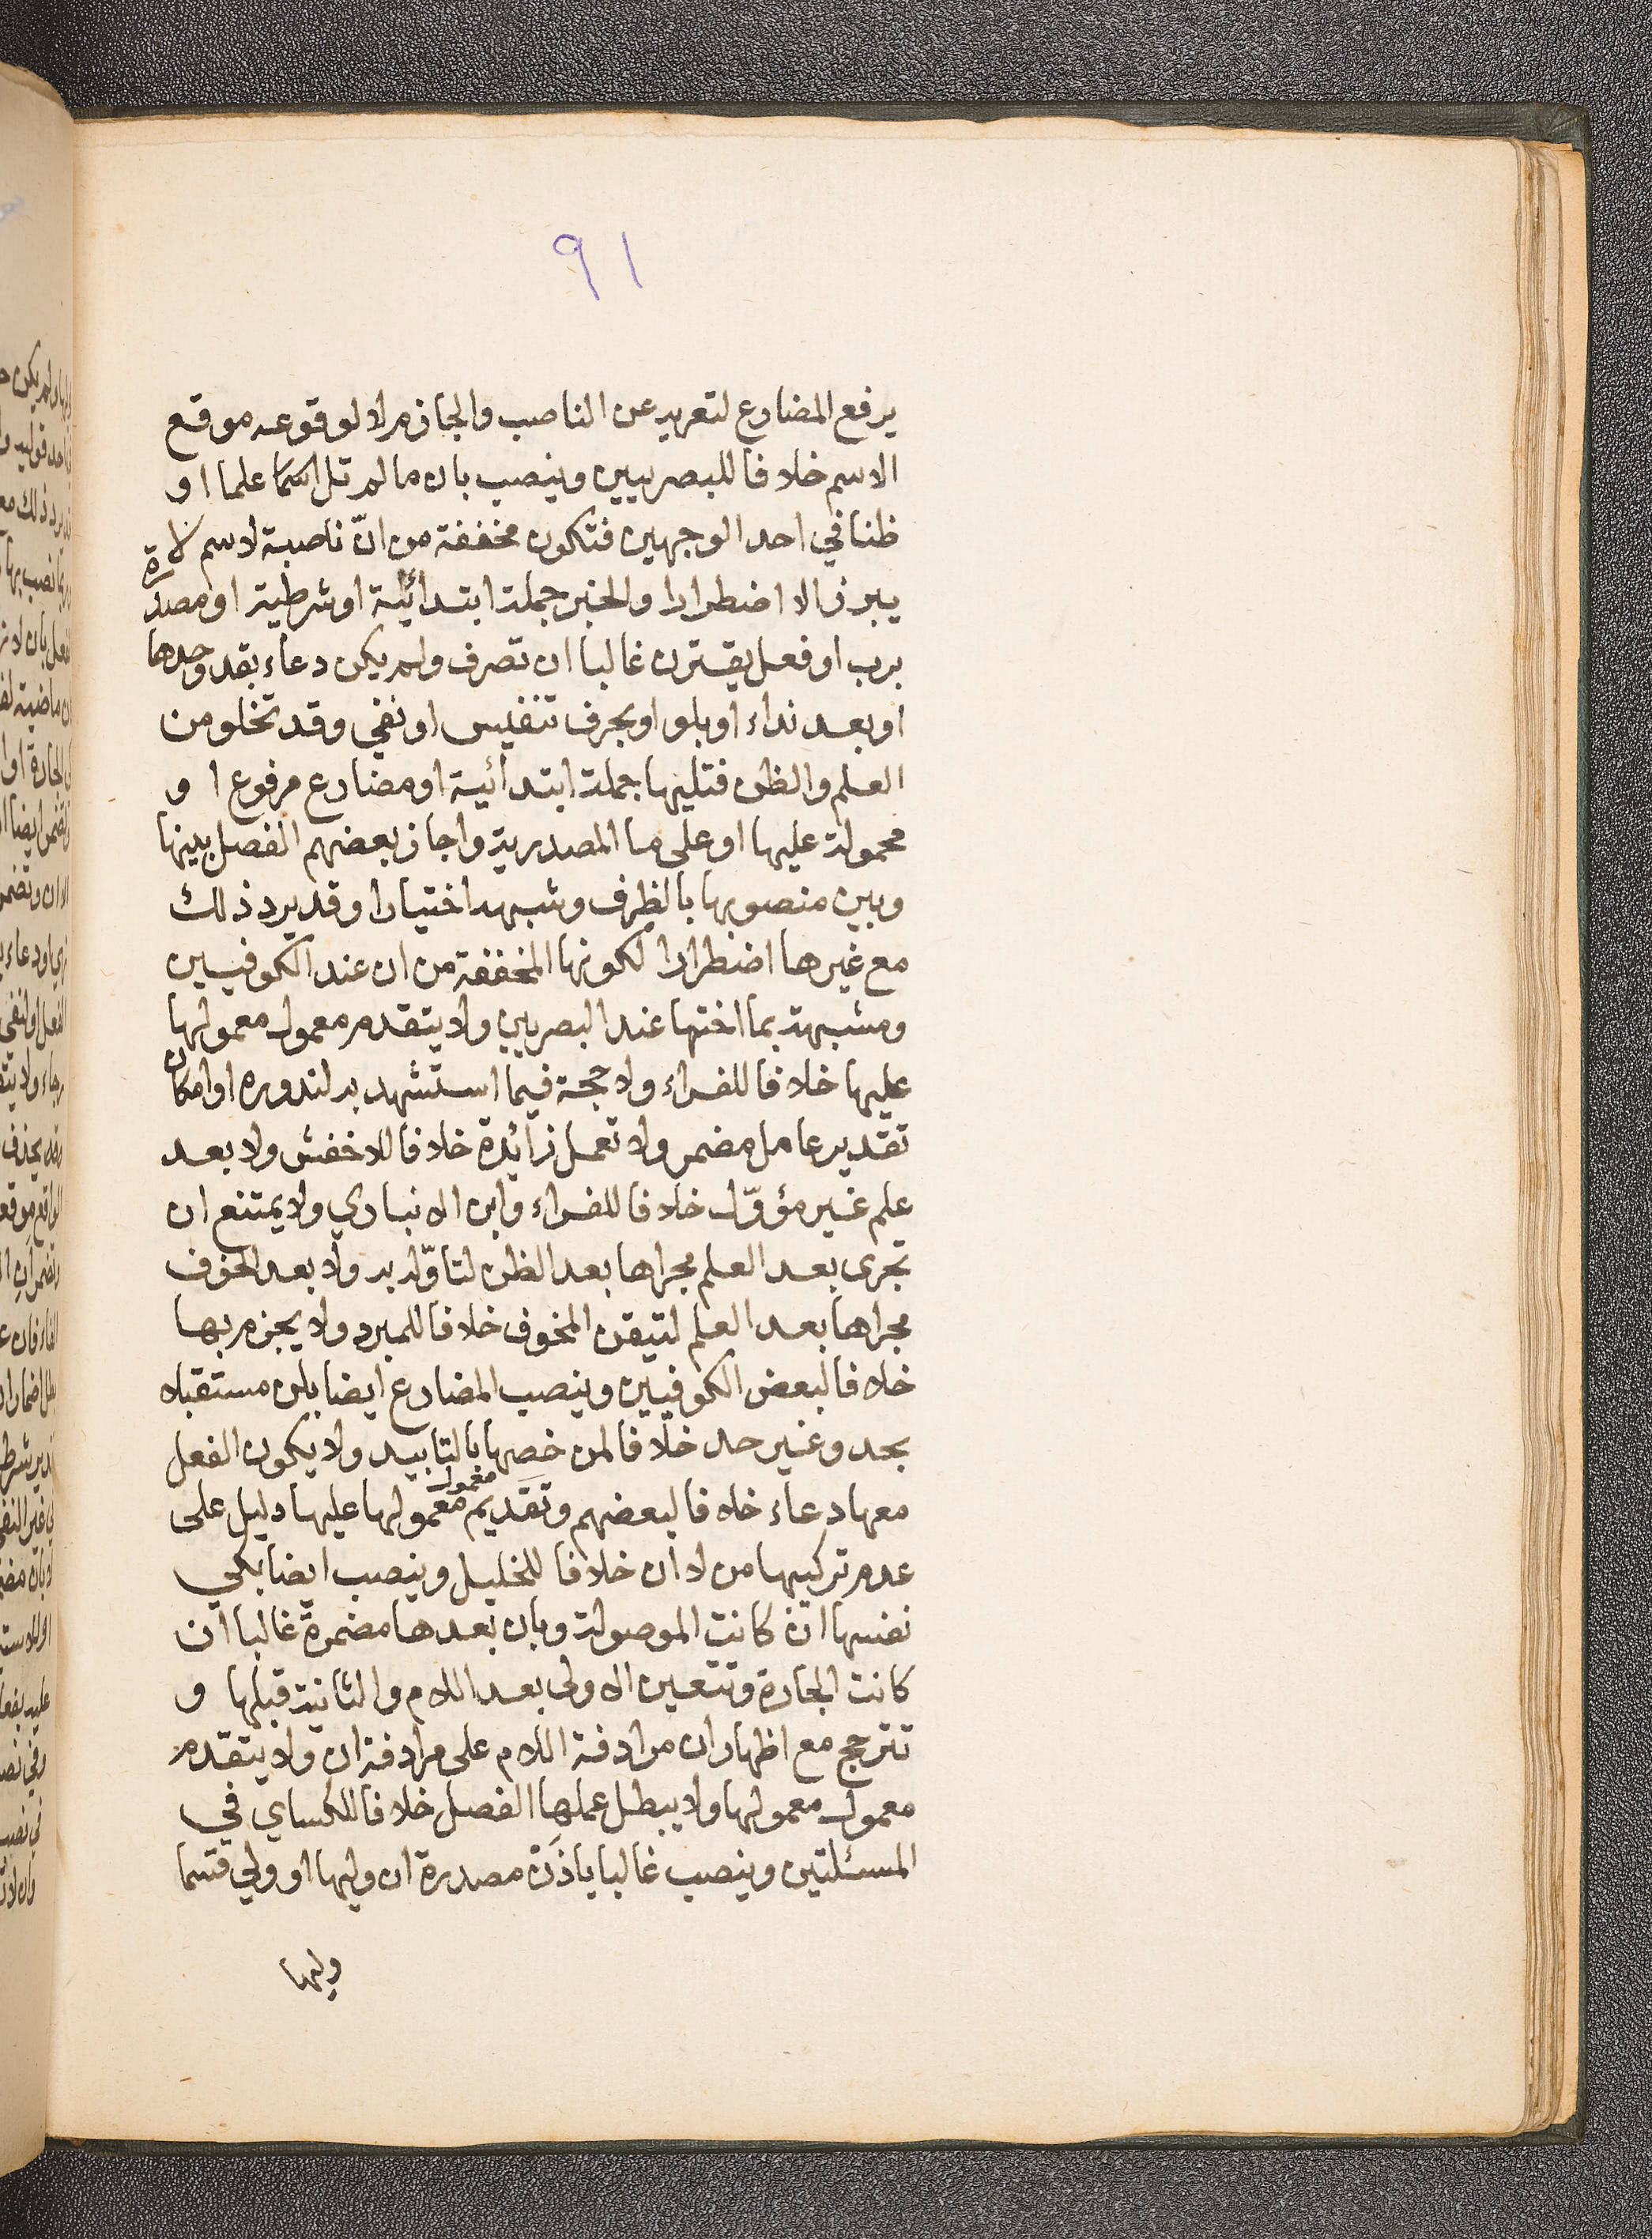 ٩١
يرفع المضارع لتعريه عن الناصب والجازم لا لوقوعه موقع
الاسم خلافا للبصريين وينصب بان ما لم تل اسما علما او
ظنا في احد الوجهين فتكون مخففة من انّ ناصبة لاسم لا
يبرز الا اضطرارا والخبر جملة ابتدائية او شرطية او مصدرة
برب او فعل يقترن غالبا ان تصرف ولم يكن دعاء بقد وحدها
او بعد نداء او بلو او بحرف تنفيس او نفي وقد تخلو من
العلم والظن فتليها جملة ابتدائية او مضارع مرفوع ا و
محمولة عليها او على ما المصدرية واجاز بعضهم الفصل بينها
وبين منصوبها بالظرف وشبهه اختيارا وقد يرد ذلك
مع غيرها اضطرارا لكونها المخففة من ان عند الكوفيين
ومشبهة بما اختها عند البصريين ولا يتقدم معمول معمولها
عليها خلافا للفراء ولا حجة فيما استشهد به لندوره او امكان
تقدير عامل مضمر ولا تعمل زائدة خلافا للاخفش ولا بعد
علم غير مؤوّل خلافا للفراء وابن الانباري ولا يمتنع ان
تجرى بعد العلم مجراها بعد الظن لتاوّله به ولا بعد الخوف
مجراها بعد العلم لتيقن المخوف خلافا للمبرد ولا يجزم بها
خلافا لبعض الكوفيين وينصب المضارع ايضا بلن مستقبلا
بحد وغير حد خلافا لمن خصها بالتابيد ولا يكون الفعل
معها دعاء خلافا لبعضهم وتقديم معمول معمولها عليها دليل على
عدم تركيبها من لا ان خلافا للخليل وينصب ايضا بكي
نفسها ان كانت الموصولة وبان بعدها مضمرة غالبا ان
كانت الجارة وتتعين الاولى بعد اللام والثانية قبلها و
تترجح مع اظهار ان مرادفة اللام على مرادفة ان ولا يتقدم
معمول معمولها ولا يبطل عملها الفصل خلافا للكساي في
المسئلتين وينصب غالبا باذن مصدرة ان وليها او ولي قسما
وليها